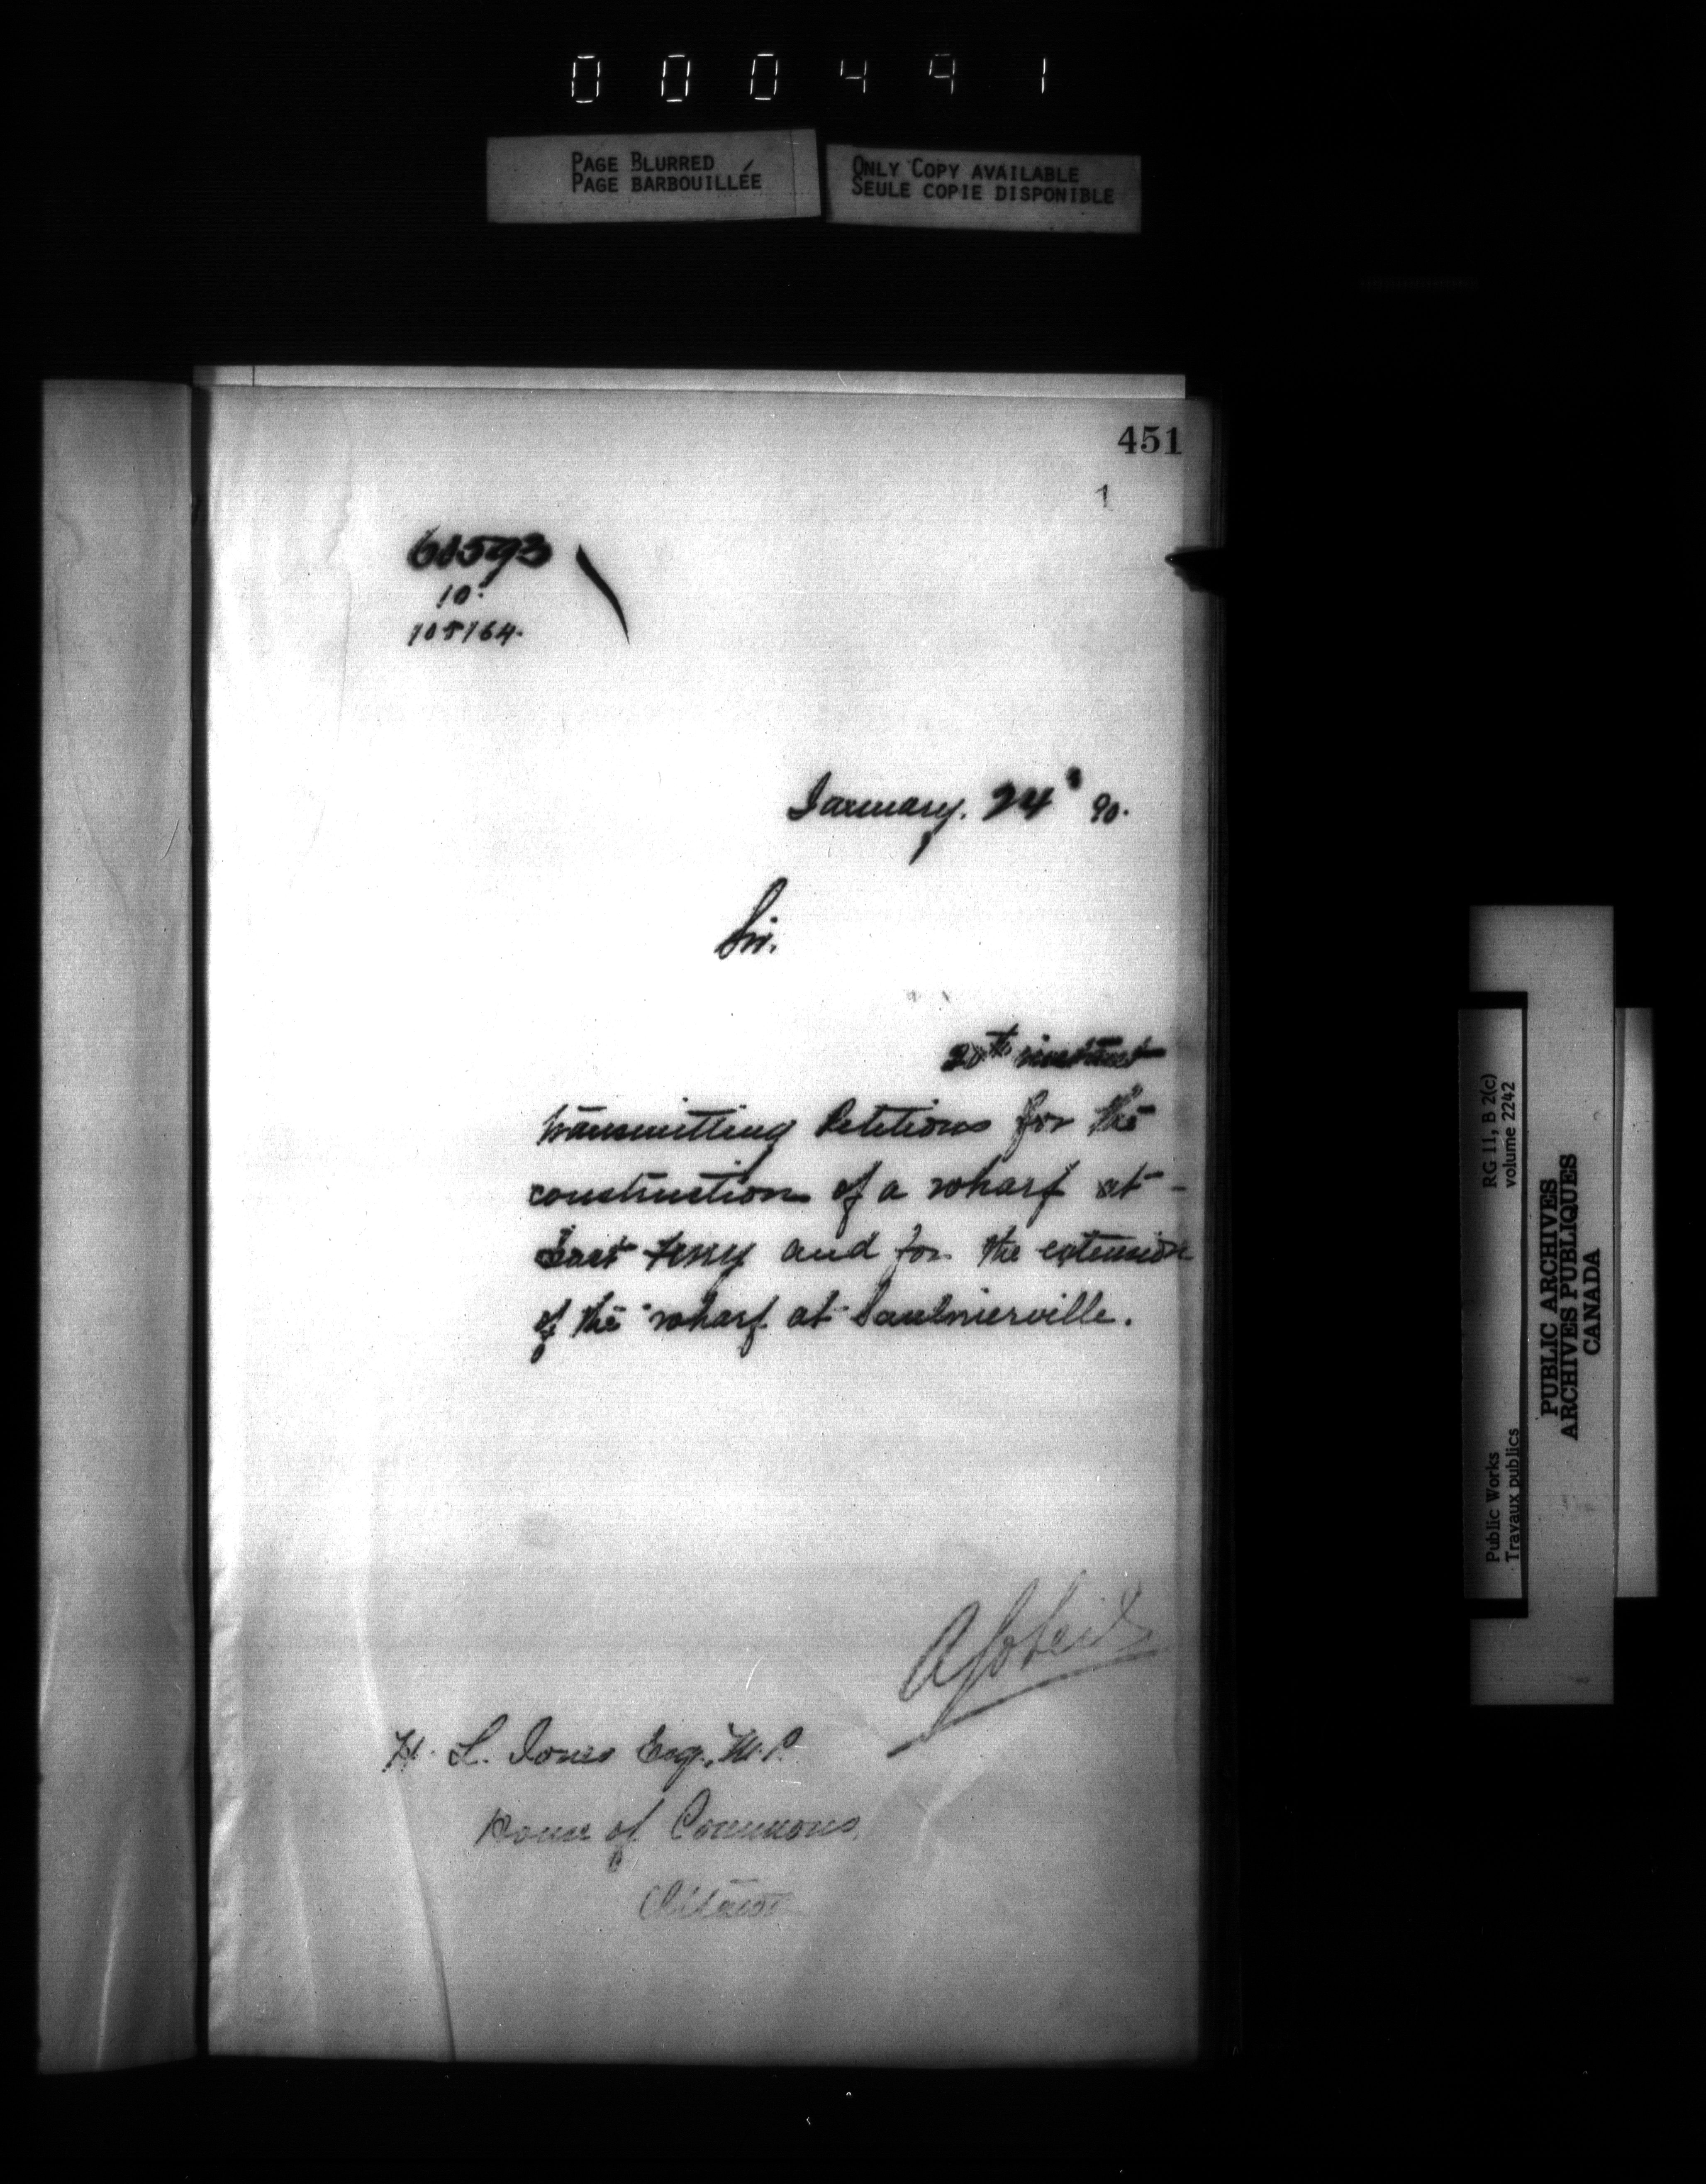 000491
PAGE BLURRED
PAGE BARBOUILLÉE
ONLY COPY AVAILABLE
SEULE COPIE DISPONIBLE
451
1
10.
105164.
January. 24 90.
Sir.
20th instant
transmitting Petitions for the
construction of a wharf at
East Ferry and for the extension
of the wharf at Saulnierville.
H. L. Jones Esq., M.P.
House of Commons
Ottawa
RG 11, B 2(c)
volume 2242
Public Works
Travaux publics
PUBLIC ARCHIVES
ARCHIVES PUBLIQUES
CANADA